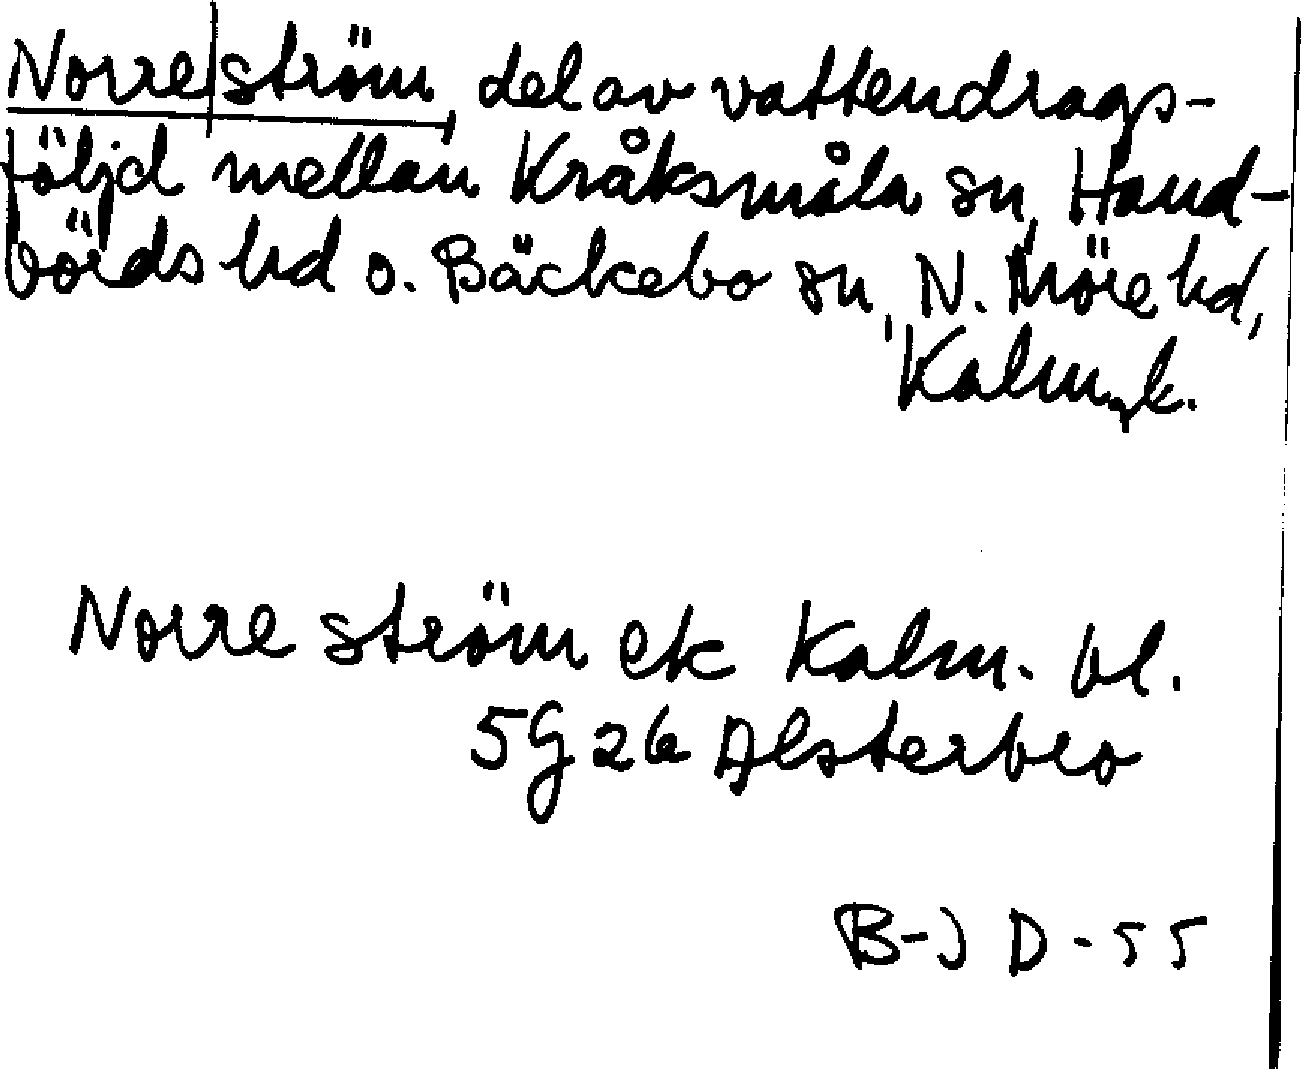 Norre|ström, del av vattendrags-
följd mellan Kråksmåla sn, Hand-
börds hd o. Bäckebo sn, N. Möre hd,
Kalm. k.
Norre ström ek Kalm. bl.
5G 26 Alsterbro
B-J D-55